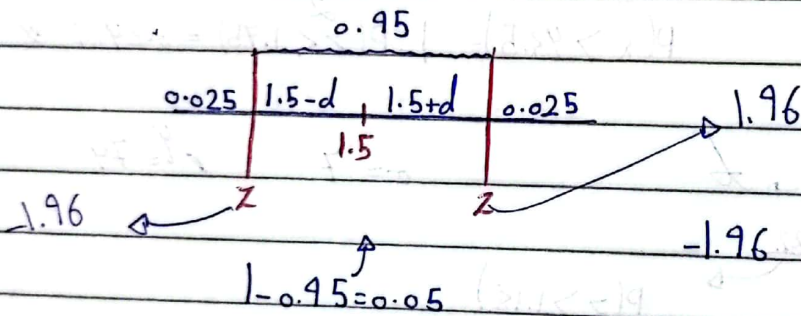 0.95
0.025 1.5-d 1.5+d 0.025 1.96
1.5
-1.96 Z Z
-1.96
1-0.95=0.05